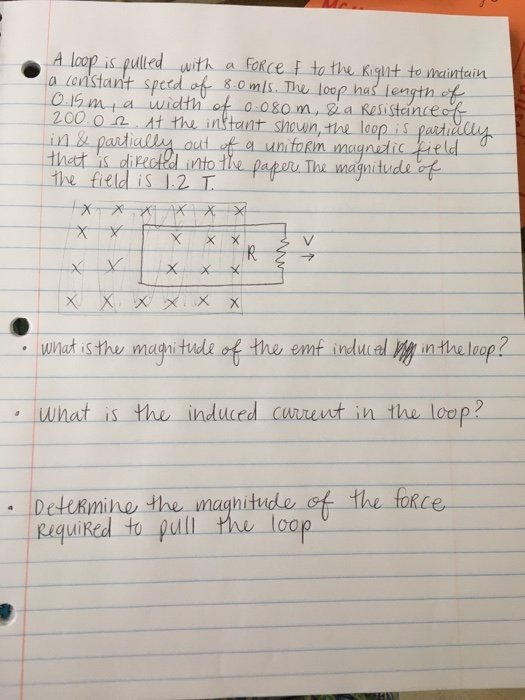 A loop is pulled with a force f to the Right to maintain
a constant speed of 8.0 m/s. The loop has length of
0.15m, a width of 0.080m, & a Resistance of
200.0 Ω. At the instant shown, the loop is partially
in & partially out of a uniform magnetic field
that is directed into the paper. The magnitude of
the field is 1.2 T.
X X X X X X
X X X X X R V →
X X X X X
X X X X X X
• what is the magnitude of the emf induced in the loop?
• What is the induced current in the loop?
• Determine the magnitude of the force
Required to pull the loop